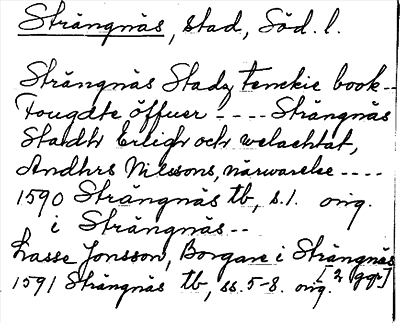 Strängnäs, stad, Söd. l.
Strängnäs Stadz tenckie book--
Fougdte öffuer ---- Strängnäs
Stadh Erligh och welachtat,
Andhrs Nilssons, närwarelse ----
1590 Strängnäs tb, s.1. orig.
i Strängnäs--
Lasse Jonsson, Borgare i Strängnäs
[2 ggr]
1591 Strängnäs tb, ss. 5-8. orig.